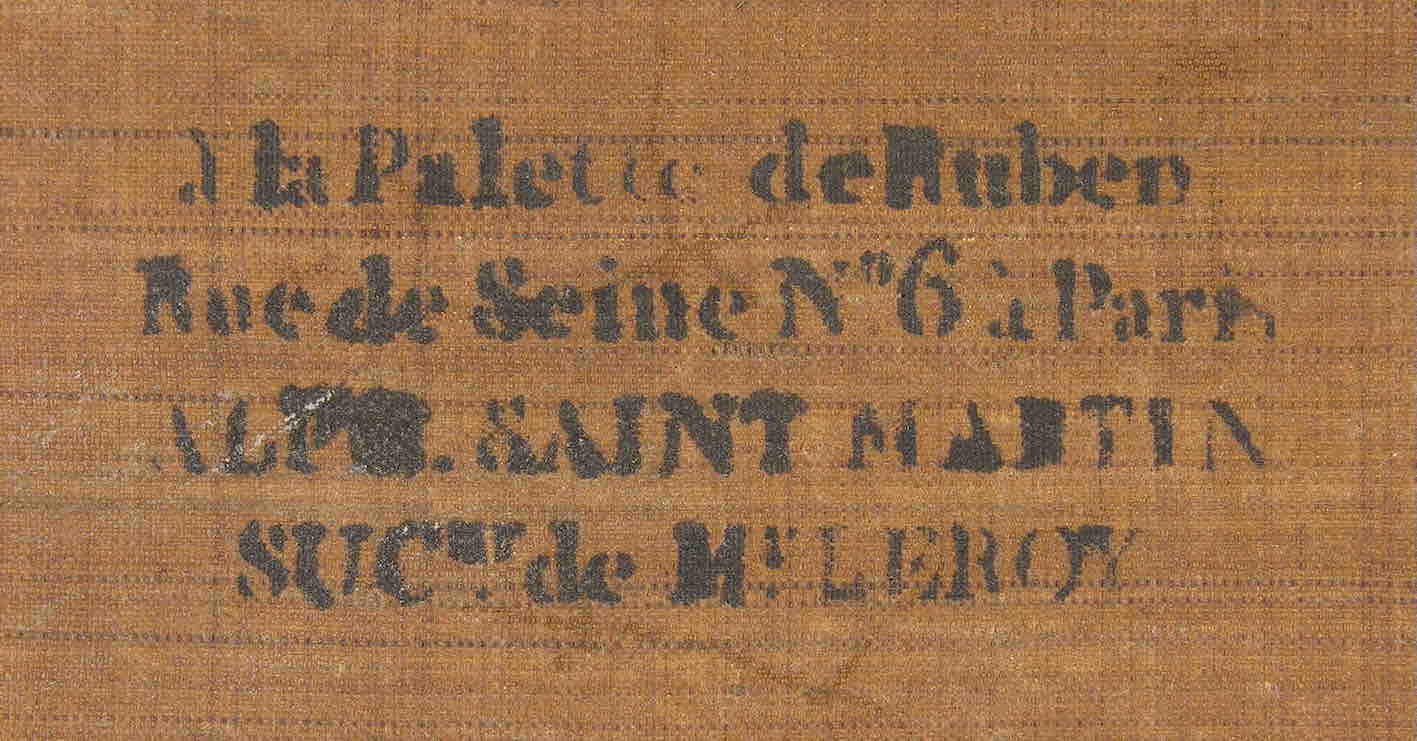 à la Palette de Ruben
Rue de Seine Nº 6 à Paris
ALPH. SAINT MARTIN
SUCʳ. de Mʳ LEROY